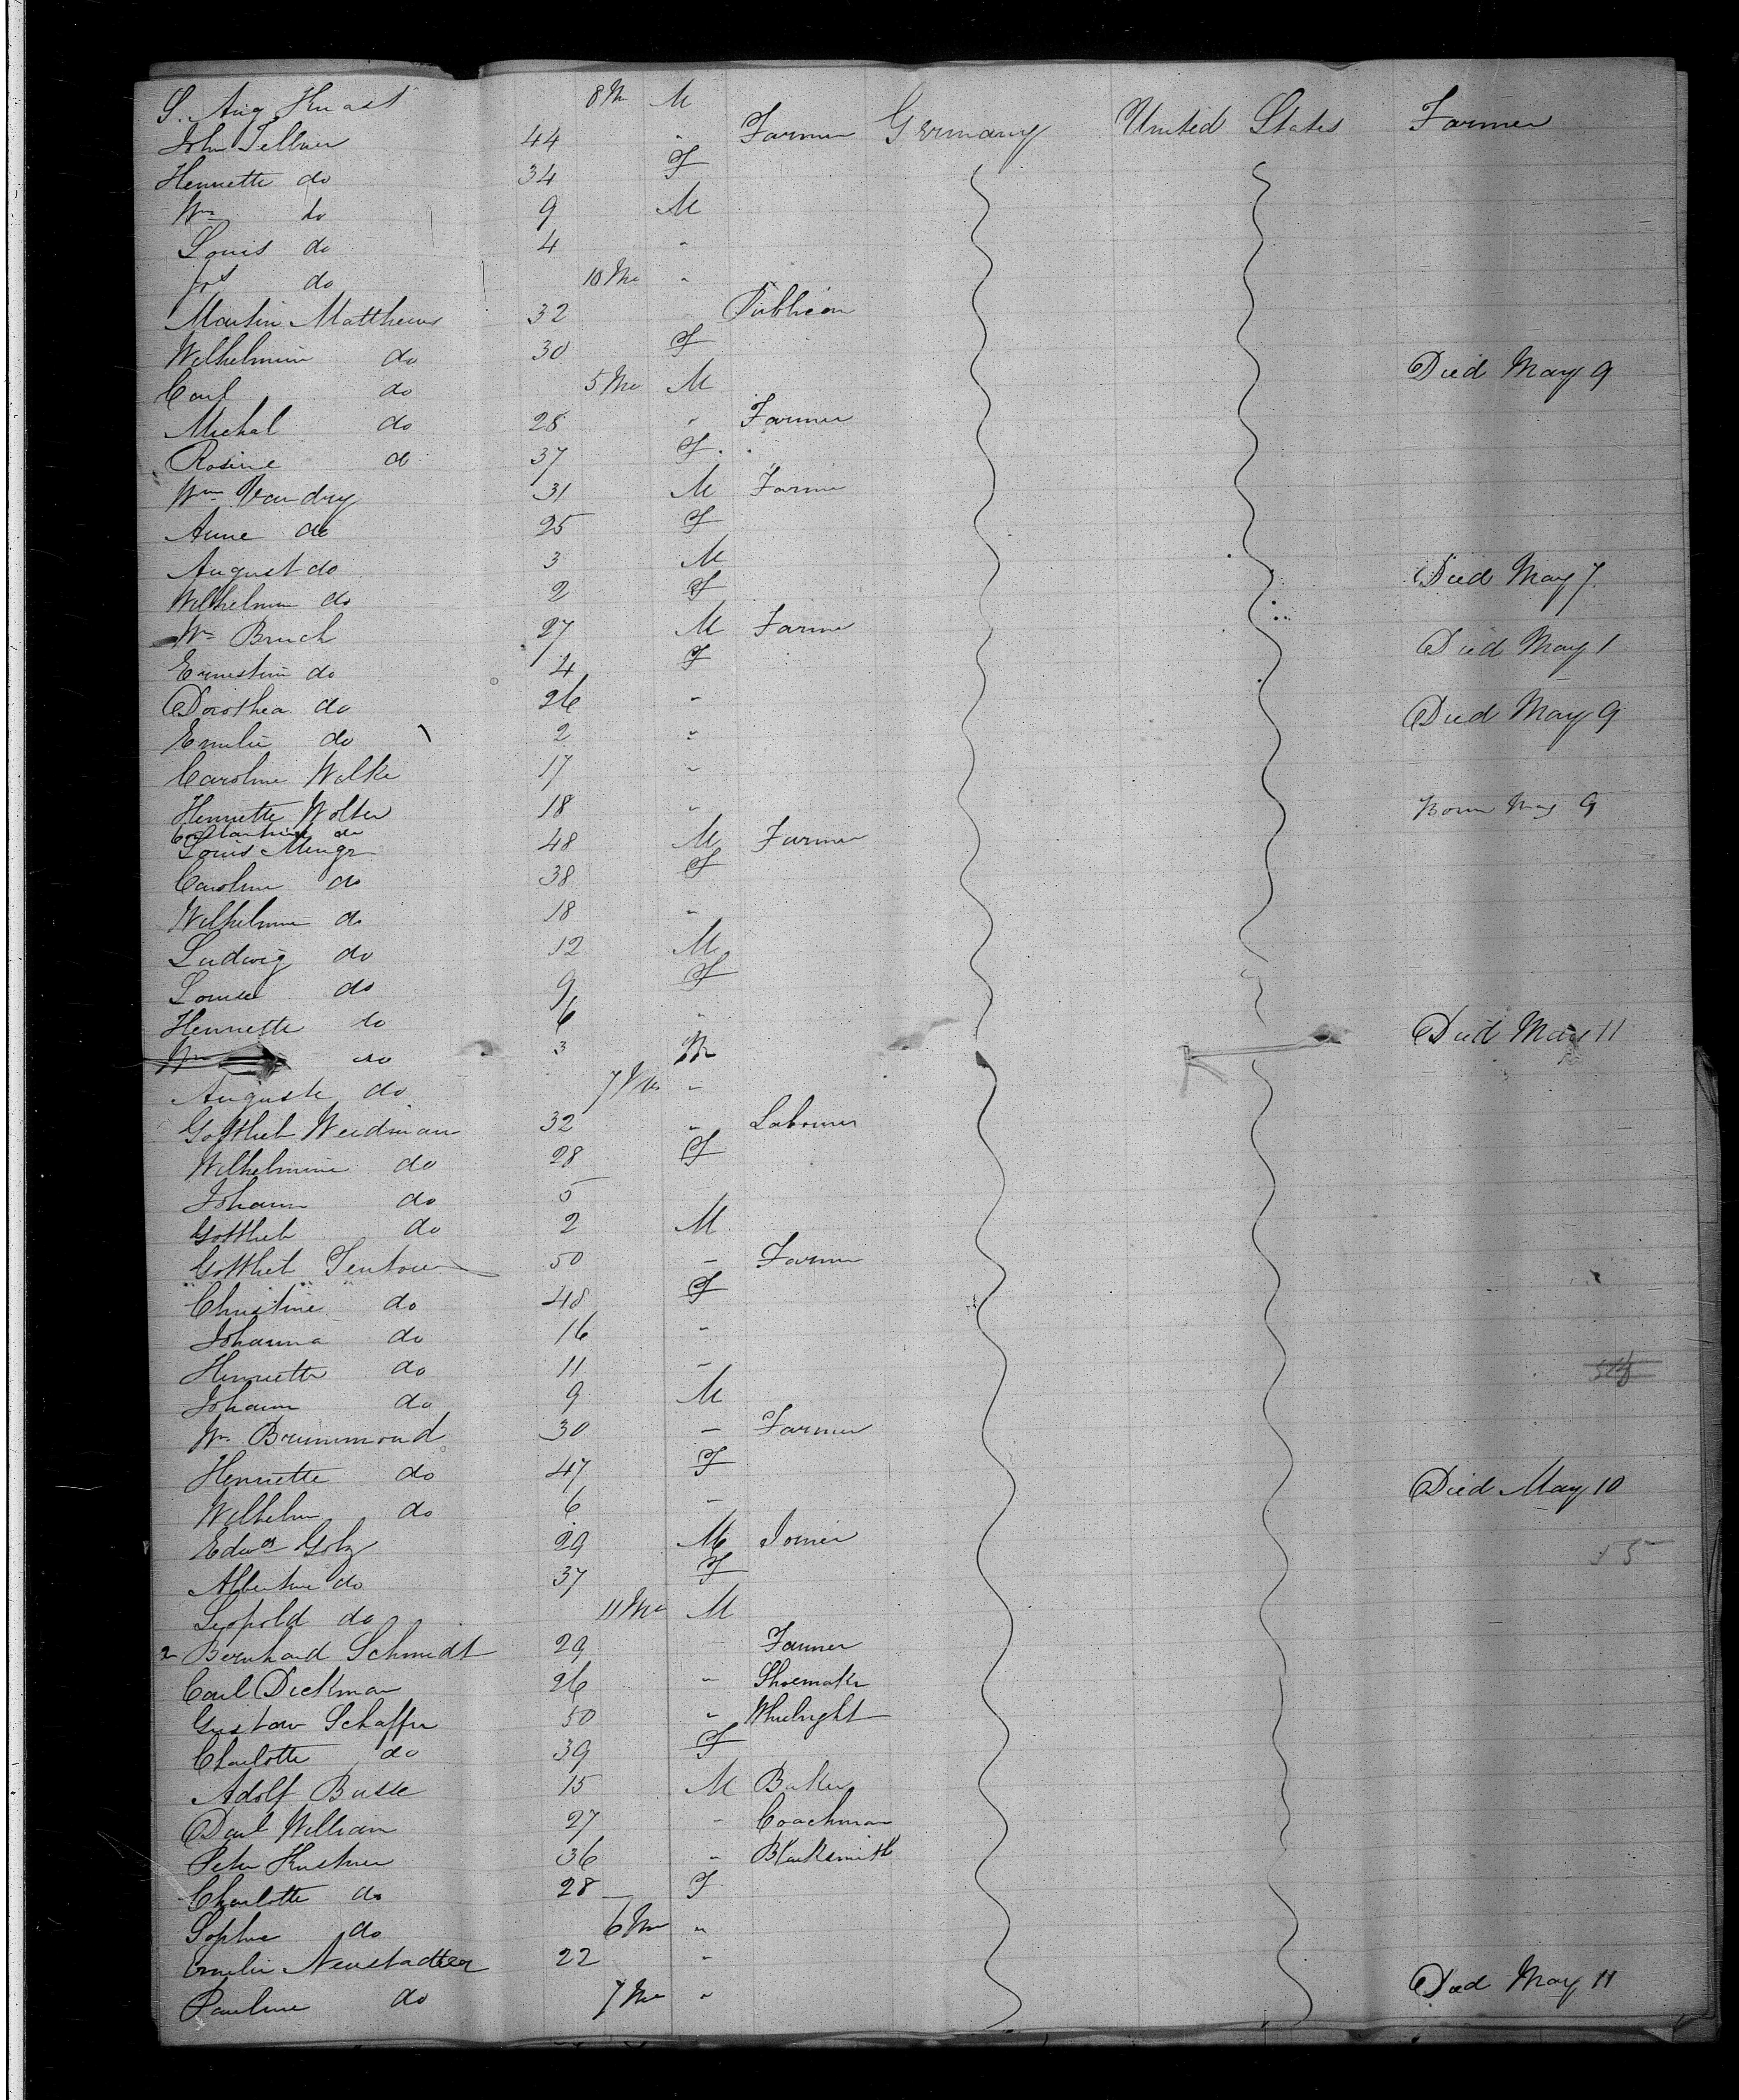 S. Aug Knast 8 Mo M
John Tellmer 44 " Farmer Germany United States Farmer
Henriette do 34 F
Wm do 9 M
Louis do 4 "
do 10 Mo "
Martin Matthews 32 Publican
Wilhelmin do 30 F
Carl do 5 Mo M Died May 9
Michal do 28 " Farmer
Rosine do 37 F
Wm 31 M Farmer
Anne do 25 F
August do 3 M Died May 7
Wilhelmin do 2 F
Wm Bruch 27 M Farmer Died May 1
Ernestin do 4 F
Dorothea do 26 " Died May 9
Emilie do 2 "
Caroline Wilke 17 "
Henriette Wolter 18 " Born May 9
do
Louis Mengr 48 M Farmer
Caroline do 38 F
Wilhelmin do 18 "
Ludwig do 12 M
Louise do 9 F
Henriette do 6 " Died May 11
Wm do 3 M
Auguste do 7 Mo "
Gottlieb Weidman 32 " Labourer
Wilhelmine do 28 F
Johann do 5
Gottlieb do 2 M
Gottlieb 50 " Farmer
Christine do 48 F
Johanna do 16 "
Henriette do 11 "
Johann do 9 M
Wm Brummond 30 " Farmer
Henriette do 47 F Died May 10
Wilhelm do 6 "
Edwd Golz 29 M Joiner 55
Albertine do 37 F
Leopold do 11 Mo M
2 Bernhard Schmidt 29 Farmer
Carl Dickman 26 " Shoemaker
Gustav Schaffer 50 " Whelright
Charlotte do 39 F
Adolf Busse 15 M Baker
Paul William 27 " Coachman
Peter Kustner 36 " Blacksmith
Charlotte do 28 F
Sophie do 6 Mo "
Emilie Neustadter 22 "
Pauline do 7 Mo " Died May 11